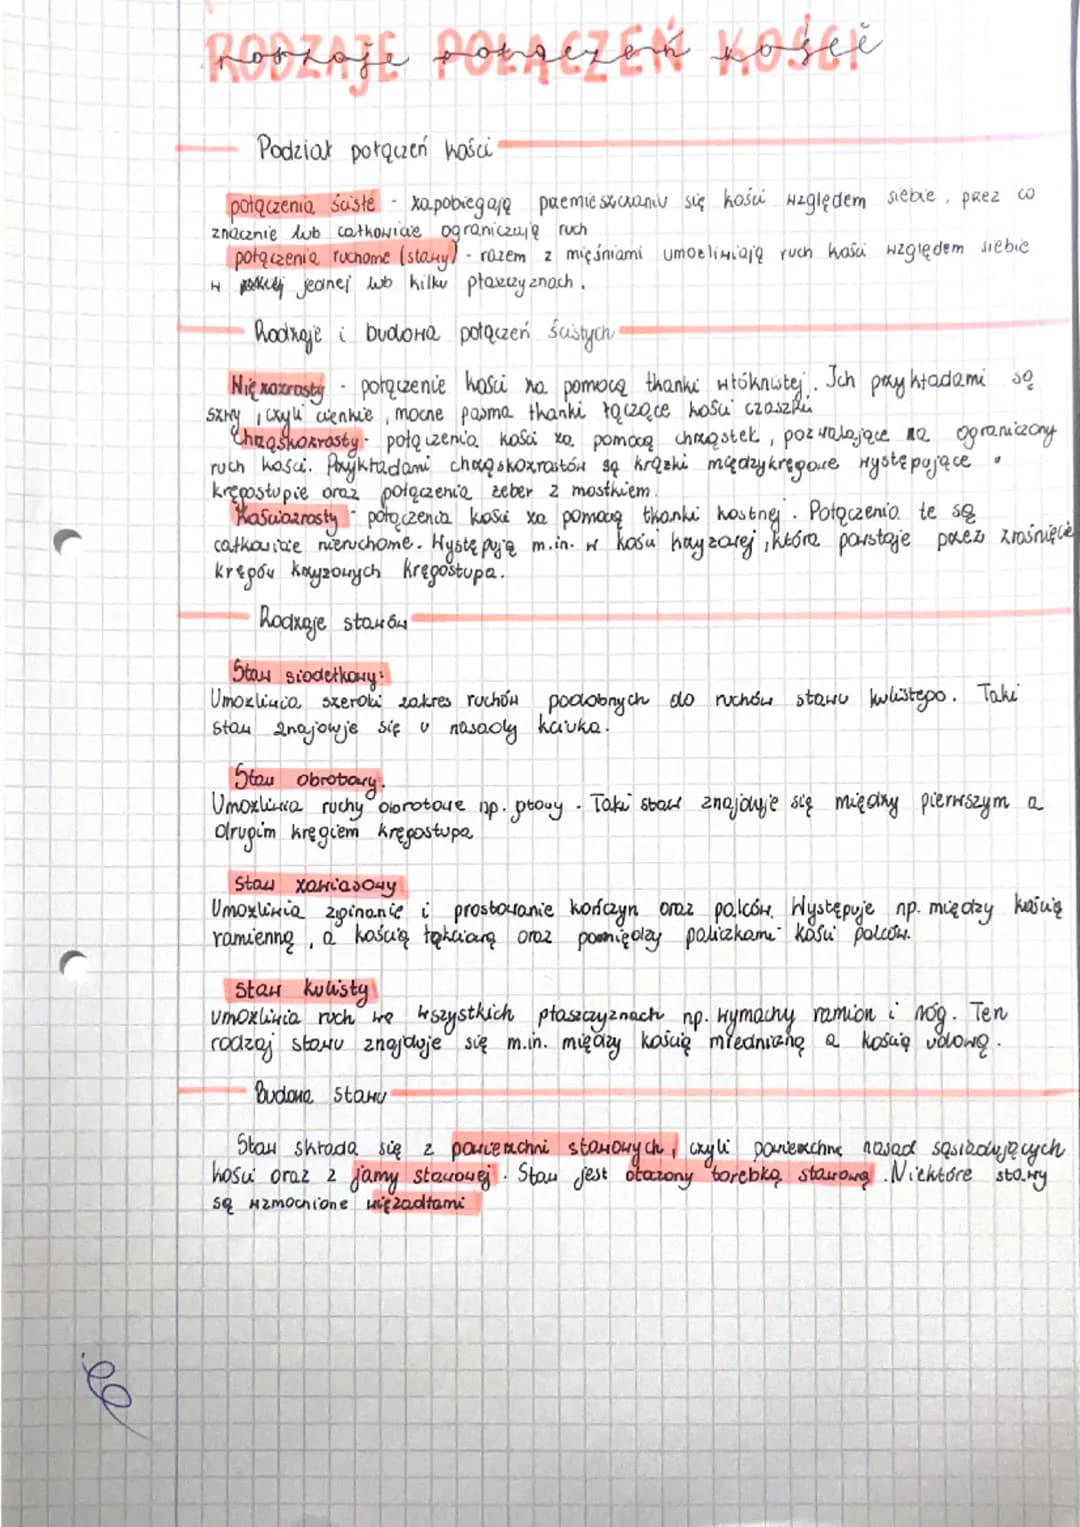 RODZAJE POŁĄCZEŃ KOŚCI
Podział połączeń kości
połączenia ścisłe - zapobiegają przemieszczaniu się kości względem siebie, przez co
znacznie lub całkowicie ograniczają ruch
połączenia ruchome (stawy) - razem z mięśniami umożliwiają ruch kości względem siebie
w jednej lub kilku płaszczyznach.
Rodzaje i budowa połączeń ścisłych
Więzozrosty - połączenie kości za pomocą tkanki włóknistej. Ich przykładami są
szwy, czyli cienkie, mocne pasma tkanki łączące kości czaszki
Chrząskozrosty - połączenia kości za pomocą chrząstek, pozwalające na ograniczony
ruch kości. Przykładami chrząskozrostów są krążki międzykręgowe występujące
kręgosłupie oraz połączenia żeber z mostkiem.
Kościozrosty - połączenia kości za pomocą tkanki kostnej. Połączenia te są
całkowicie nieruchome. Występują m.in. w kości krzyżowej, która powstaje przez zrośnięcie
kręgów krzyżowych kręgosłupa.
Rodzaje stawów
Staw siodełkowy:
Umożliwia szeroki zakres ruchów podobnych do ruchów stawu kulistego. Taki
staw znajduje się u nasady kciuka.
Staw obrotowy.
Umożliwia ruchy obrotowe np. głowy. Taki staw znajduje się między pierwszym a
drugim kręgiem kręgosłupa
Staw zawiasowy
Umożliwia zginanie i prostowanie kończyn oraz palców. Występuje np. między kością
ramienną, a kością łokciową oraz pomiędzy paliczkami kości palców.
Staw kulisty
umożliwia ruch we wszystkich płaszczyznach np. wymachy ramion i nóg. Ten
rodzaj stawu znajduje się m.in. między kością miedniczną a kością udową.
Budowa stawu
Staw składa się z powierzchni stawowych, czyli powierzchnę nasad sąsiadujących
kości oraz z jamy stawowej. Staw jest otoczony torebką stawową. Niektóre stawy
są wzmocnione więzadłami